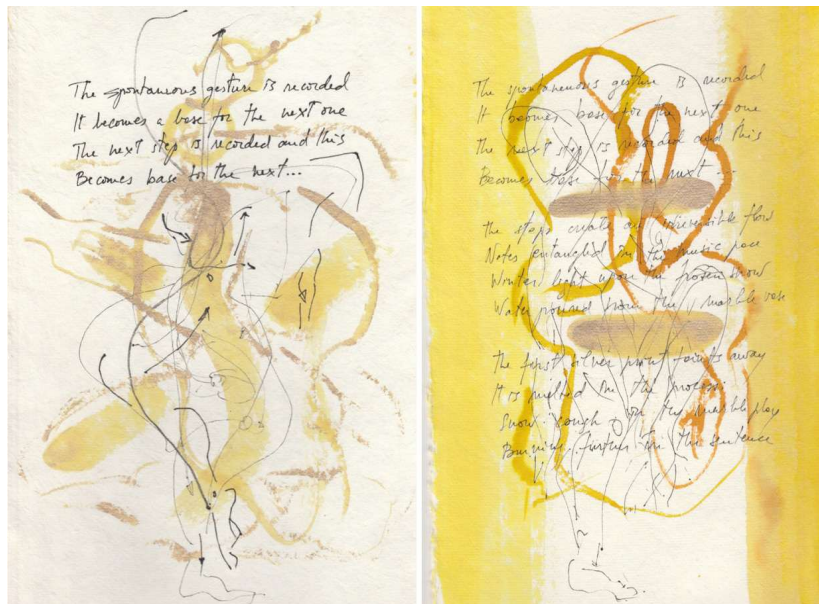 The spontaneous gesture is recorded
It becomes a base for the next one
The next step is recorded and this
Becomes base for the next...
The spontaneous gesture is recorded
It becomes base for the next one
The next step is recorded and this
Becomes base for the next ...
the steps create an irreversible flow
Notes entangled in the music
Winter light upon the frozen snow
Water poured from the marble vase
the first silver print points away
It is melted in the process
Snow on the marble
Burning further in the sentence